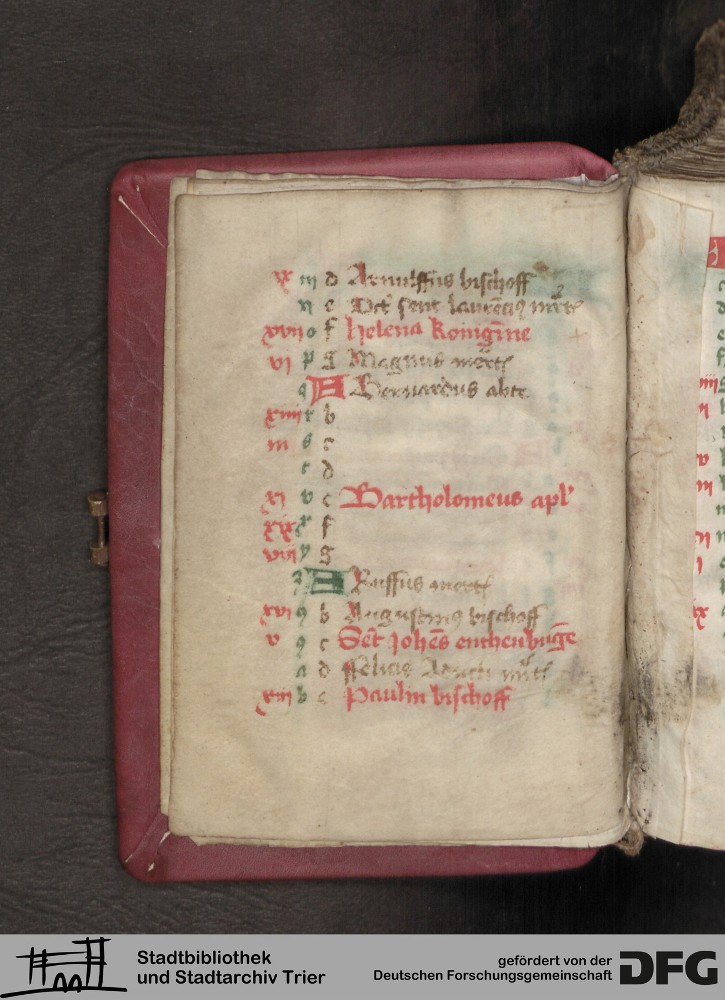 ix m d Arnulffus bischoff
n e Oct sent laurēciꝯ m̄rt
xvii o f helena koingīne
vi p g Magnus mert
q A Bernardus abte
xiiii r b
iii s c
t d
xi v e Bartholomeus apl'
xix x f
viii y g
z A Ruffus mert
xvi ꝯ b Augustinꝯ bischoff
v 9 c Sēt Johēs entheubūge
a d ffelicis m̄rt
xiii b e Paulin bischoff
Stadtbibliothek
und Stadtarchiv Trier
gefördert von der
Deutschen Forschungsgemeinschaft
DFG